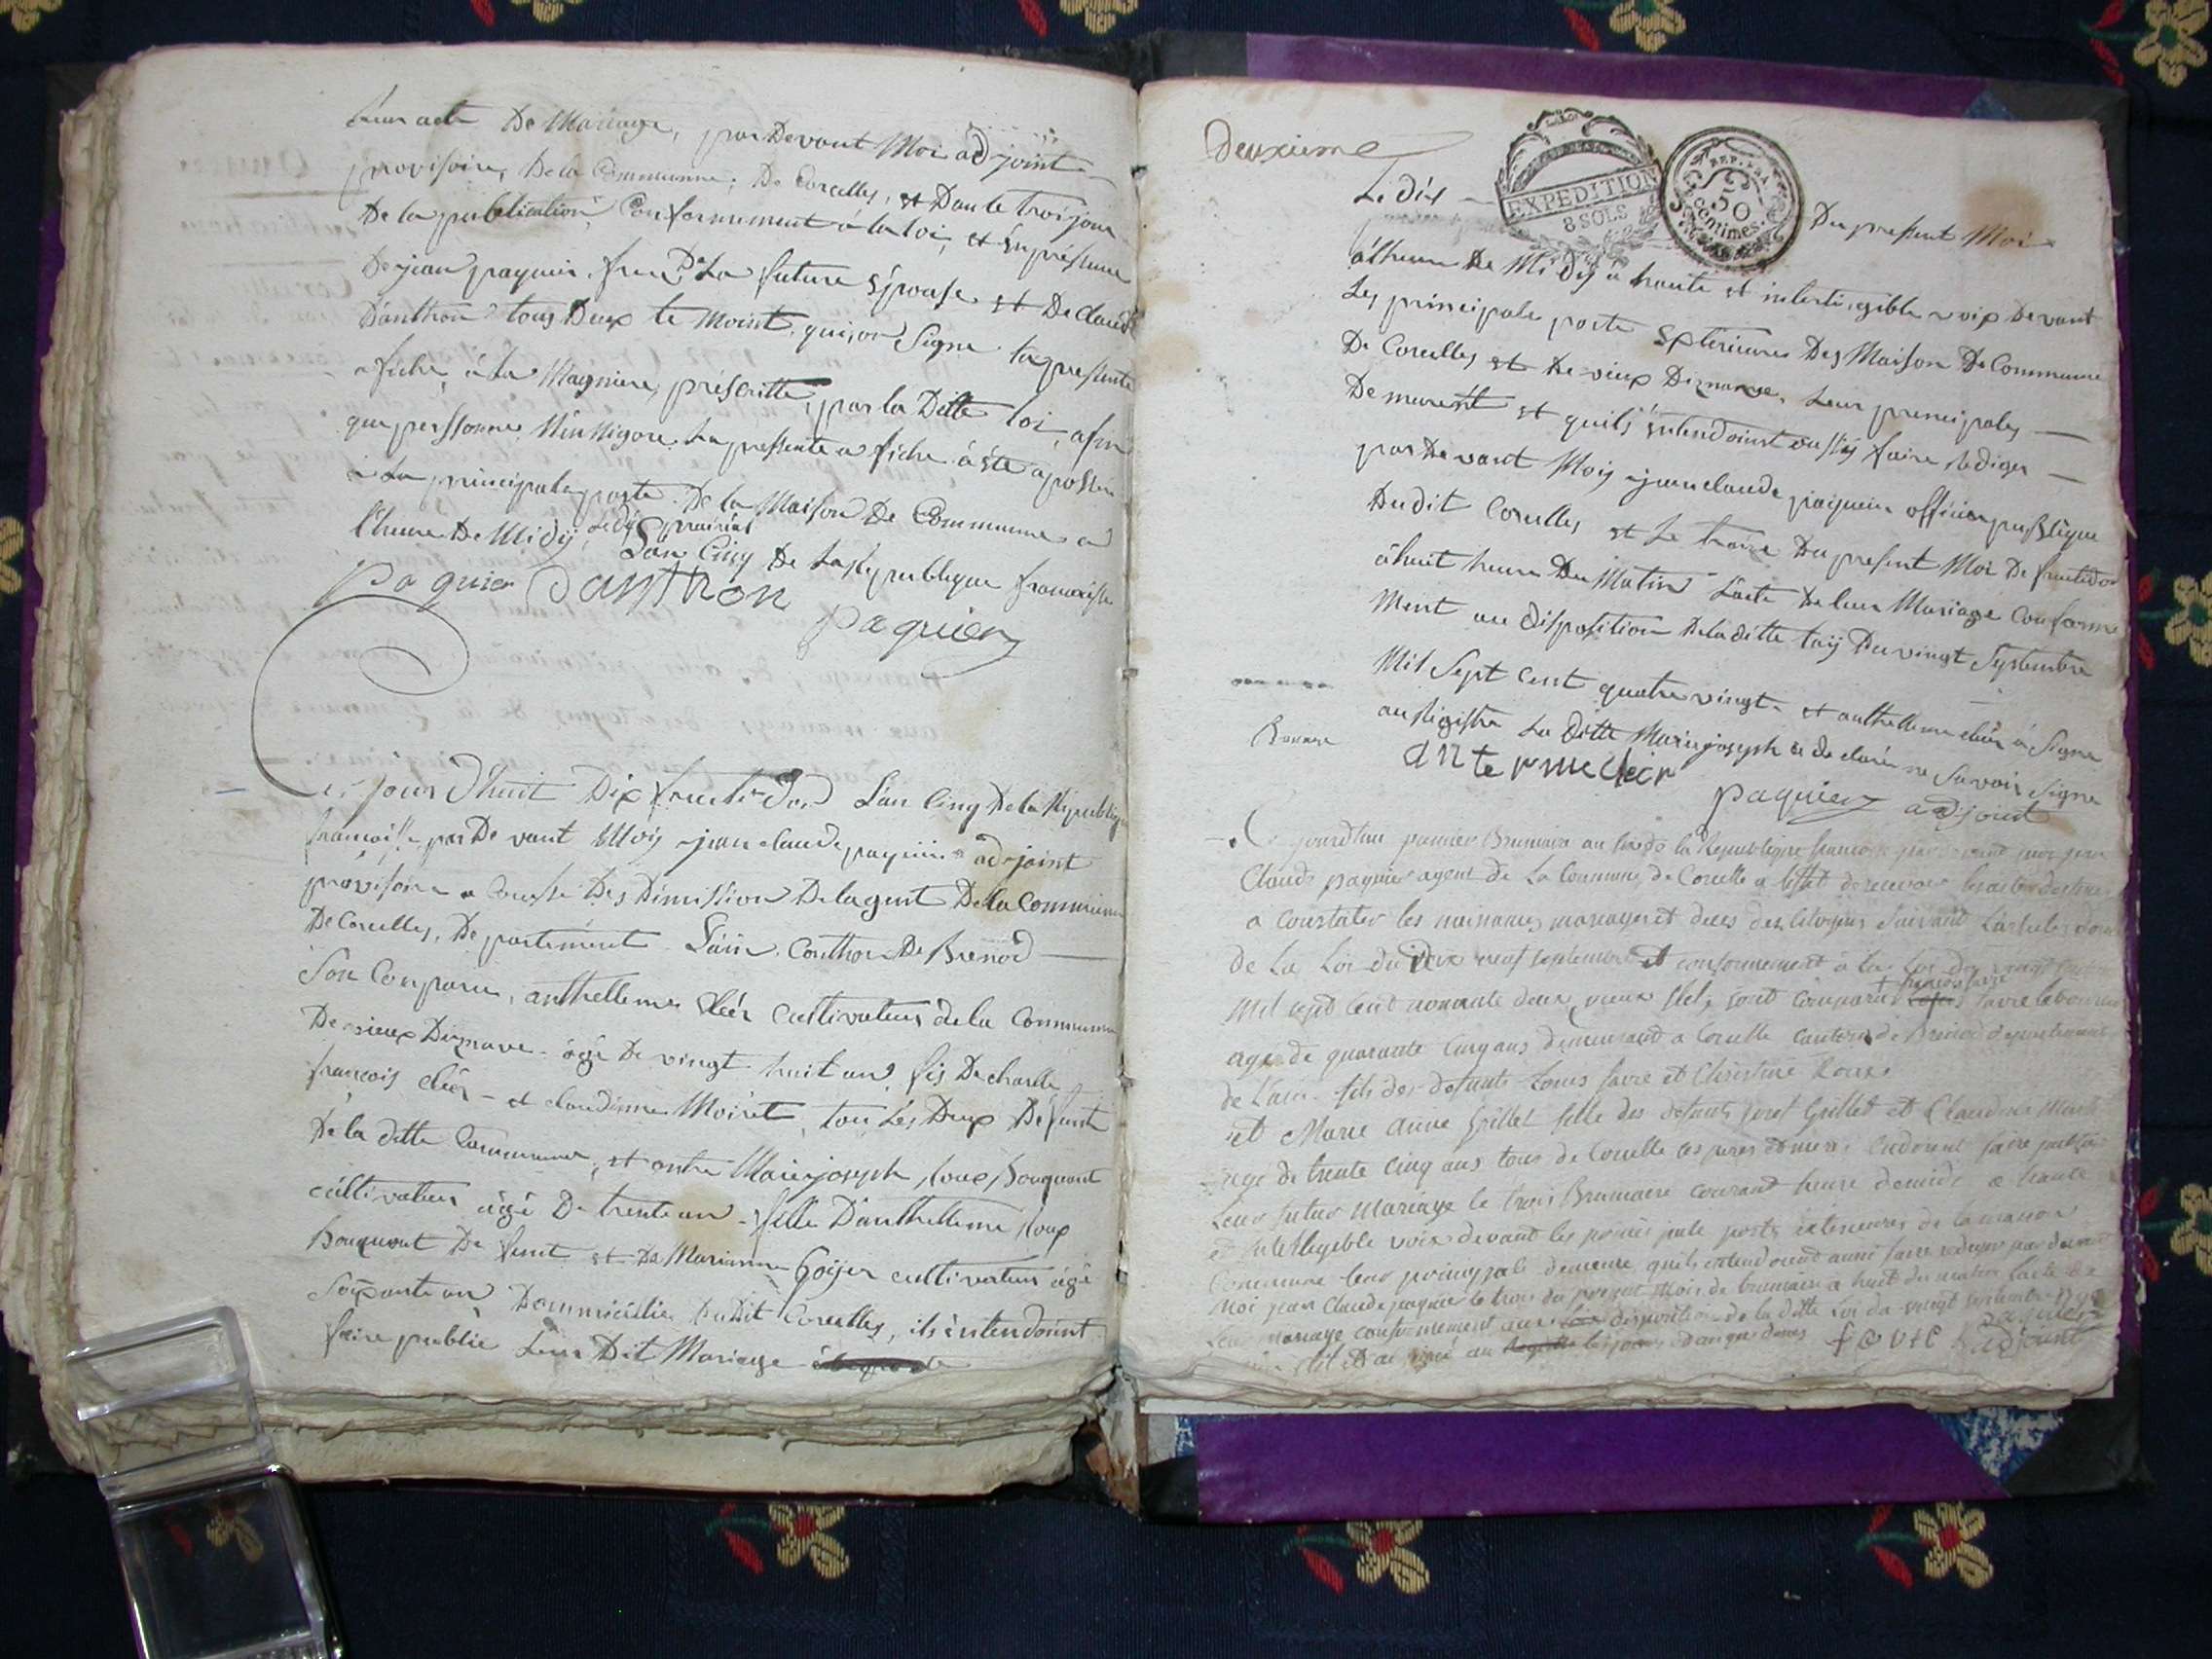 leur acte De Mariage, par Devant Moi adjoint
provisoire, De la Commune, De Corcelles, et Dans le trois jour
De la publication, Conformement á la loi, et én présence
De jean paquier, frere De La future épouse et De claude
Danthon tous Deux te moint, qui, on Signe la presente
afiche, á La Magniere, préscritte, par la Ditte loi, afin
que perssonne N'én Nigore La presente a fiche á été aposée
á La principale porte De la Maison De Commune a
l'heure De Midÿ, Le dix prairial
L'an Cinq De La Republique francaisse
paquier Danthon
paquier
Ce jour D'huit Dix fructi Dor L'an Cinq De la Republique
francaisse, par De vant Moÿ jean claude paquier adjoint
provisoire a Causse Des Dimission De lagent De la Commune
De Corcelles, Departement L'ain Conthon De Brenod
Son Comparu, anthelleme cléér Cultivateur dela Commune
De vieux Dizenave âgé De vingt huit an, fis De charlle
francois cléér et claudinne Moirét, tou Lés Deux Défunt
De la ditte Commune, et ontre Marie joseph Roux Bouquent
cultivateur âgé De trente an fille D'anthelleme Roux
Bouquent De funt et De Marianne Goÿer cultivateur âgé
Soixante an Dommicilie Du Dit Corcelles, ils éntendoint
faire publié Leur Dit Mariage
Deuxieme
EXPEDITION
8 SOLS
REP. FRA.
50
Centimes.
Le dix Du present Moi
á lheure De Midÿ á haute et intertigible voix Devant
Les principale porte Exterieures Des Maison De Commune
De Corcelles et De vieux Dizenave, Leur principales
De murent et quils éntendoint aussÿ faire rediger
par De vant Moÿ jean claude paquier officier publique
Du dit Corcelles et Le traize Du present Moi De fructidor
á huit heure Du Matin L'acte De leur Mariage Conforme
ment au disposition De la ditte loÿ Du vingt Septembre
Mil Sept Cent quatre vingt et anthelleme cléér á Signé
au Registre La Ditte Marie joseph a de claré ne Savoir Signe
antermecleer
paquier adjoint
Ce jourdhui premier Brumaire an six de la Republique francoise par devant moi jean
Claude paquier agent de La Commune de Corcelle a leffet de recevoir les actes destinés
a Constater les naissances mariages et deces des Citoyens Suivant
de La Loi du Dix neuf septembre et conformement a la Loi du vingt
Mil sept Cent nonante deux vieux stel, sont comparus francois favre
age de quarante Cinq ans demeurant a Corcelle Canton de Brenod departement
de L'ain fils des defunts Louis favre et Christine Roux
et Marie Anne Grillet fille des defunts josef Grillet et Claudine
age de trente Cinq ans tous de Corcelle ces peres et meres Endonent faire publier
Leur futur Mariage le trois Brumaire courant heure demidi a haute
et intelleygible voix devant les principale porte exterieures de la maison
Commune leur principale demeure quils entendoient aussi faire rediger par devant
Moi jean Claude paquier le trois du present Mois de brumaire a huit du matin Lacte de
Leur mariage conformement aux disposition de la ditte Loi du vingt septembre 1792
paquier
adjoint